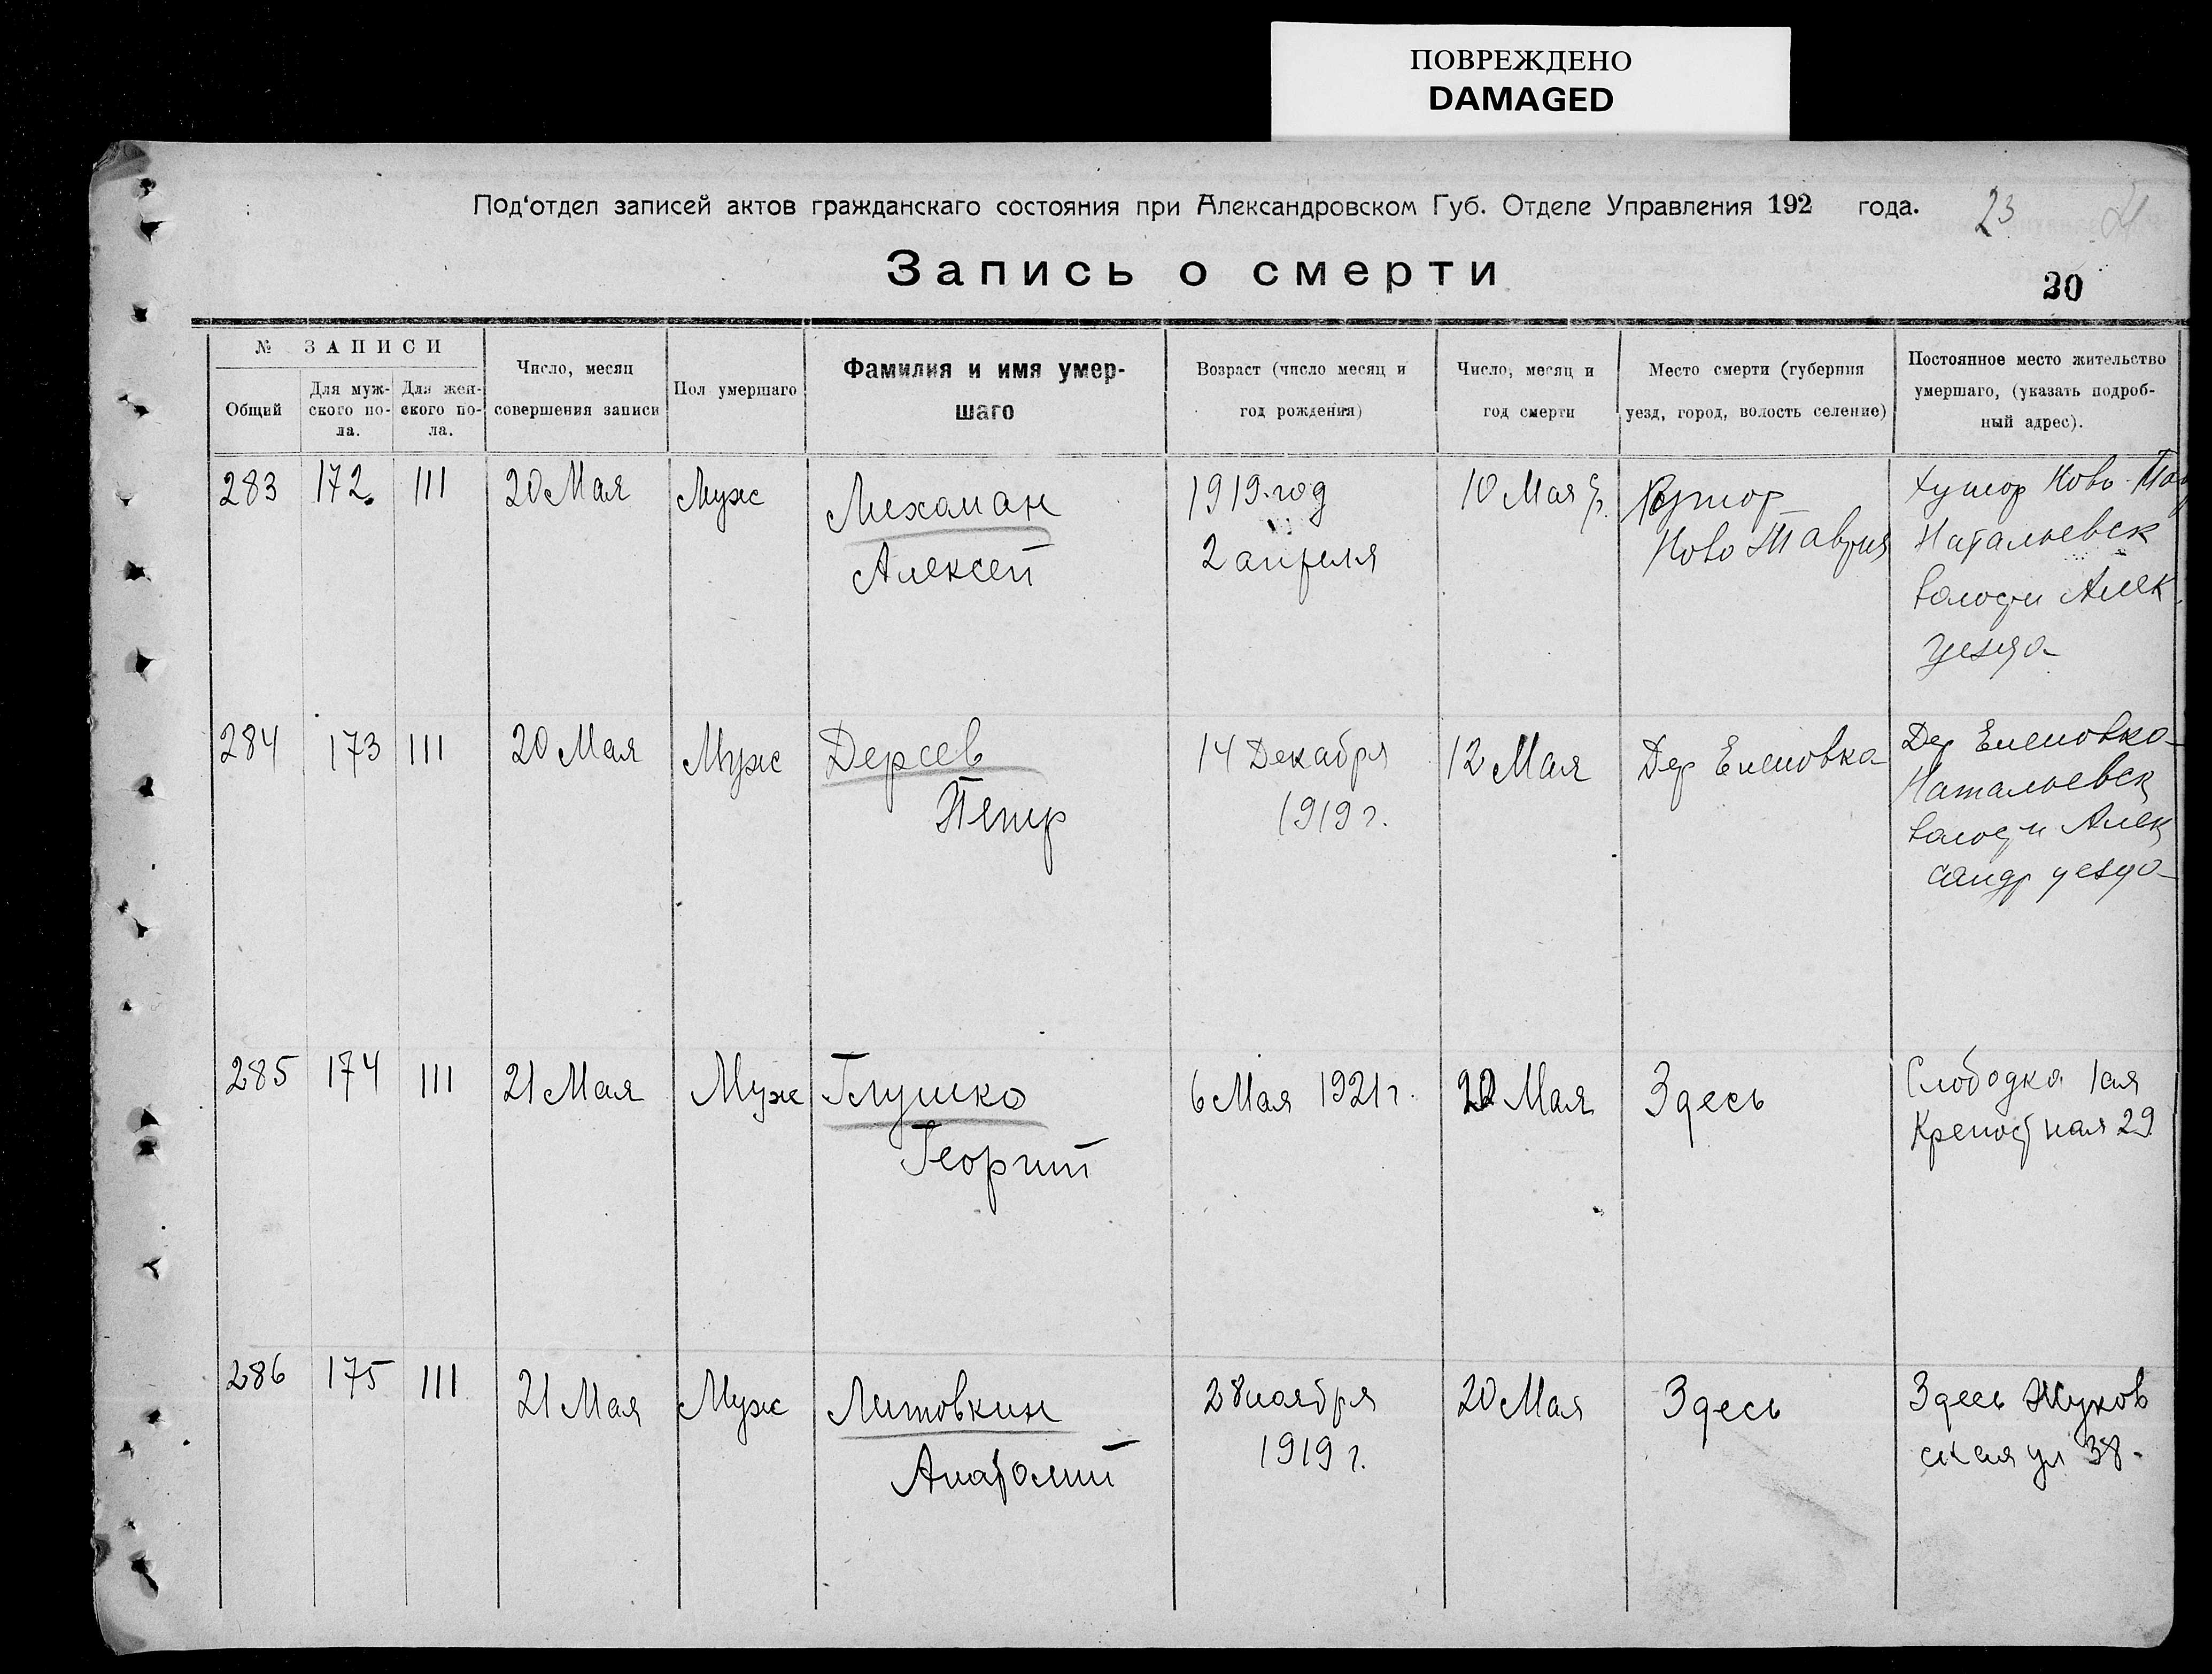 ПОВРЕЖДЕНО
DAMAGED
Под‘отдел записей актов гражданскаго состояния при Александровском Губ. Отделе Управления 192 года.
23
Запись о смерти
30
№ ЗАПИСИ
Общий
Для муж-
ского по-
ла.
Для жен-
ского по-
ла.
Число, месяц
совершения записи
Пол умершаго
Фамилия и имя умер-
шаго
Возраст (число месяц и
год рождения)
Число, месяц и
год смерти
Место смерти (губерния
уезд, город, волость селение)
Постоянное место жительство
умершаго, (указать подроб-
ный адрес).
283 172 111 20 Мая Муж
Лихаман
Алексей
1919 год
2 апреля
10 Мая
Хутор
Ново Таврия
Хутор Ново
Натальевск
волости Алек
уезда
284 173 111 20 Мая Муж
Дерсев
Петр
14 Декабря
1919 г.
12 Мая
Дер Еленовка
Дер Еленовка
Натальевск
волости Алек
сандр уезда
285 174 111 21 Мая Муж
Глушко
Георгий
6 Мая 1921 г.
20 Мая
Здесь
Слободка 1ая
Крепостная 29
286 175 111 21 Мая Муж
Литовкин
Анатолий
28 ноября
1919 г.
20 Мая
Здесь
Здесь Жуков
ская ул 38